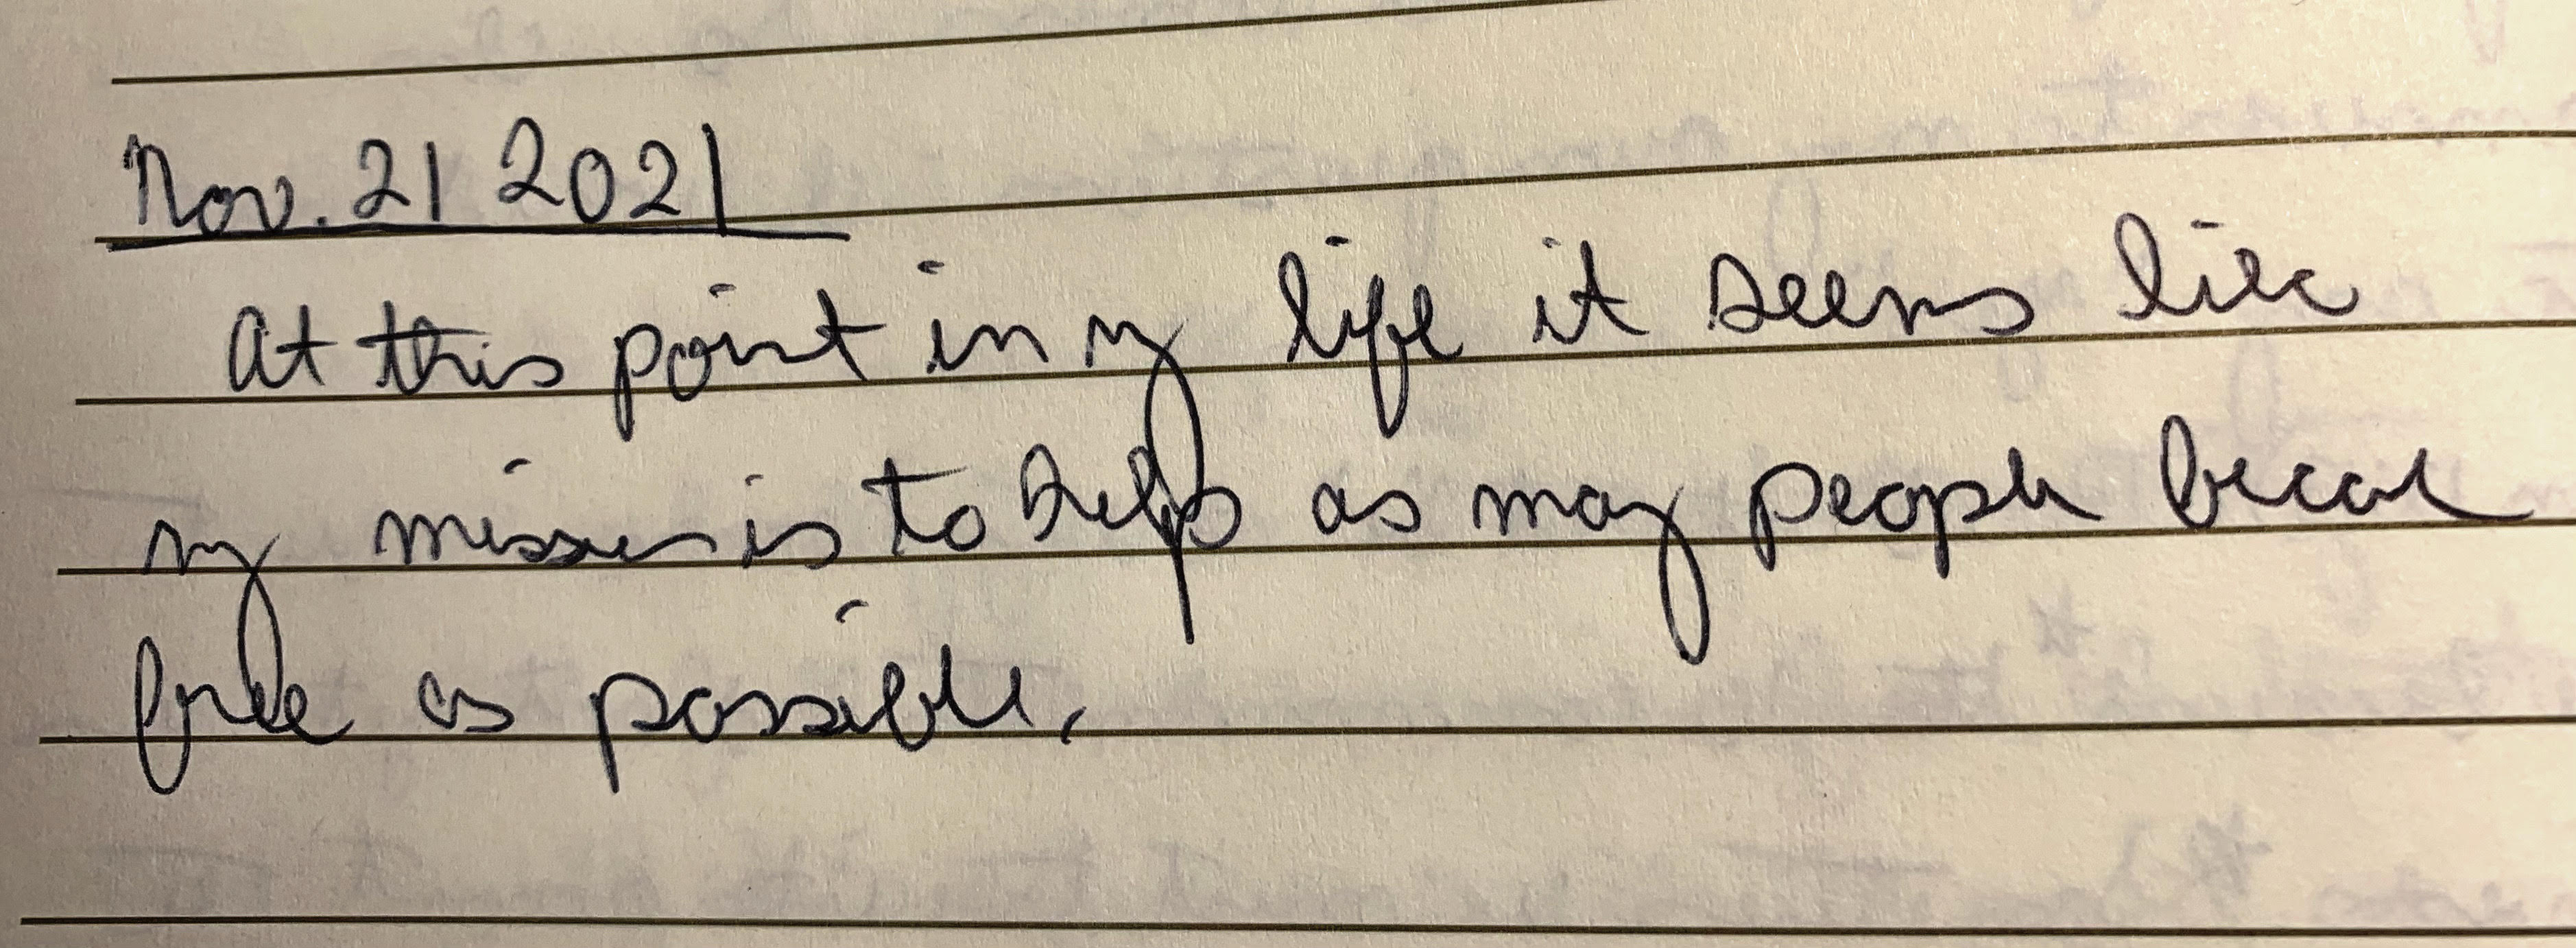 Nov. 21 2021
At this point in my life it seems like
my mission is to help as many people become
free as possible.